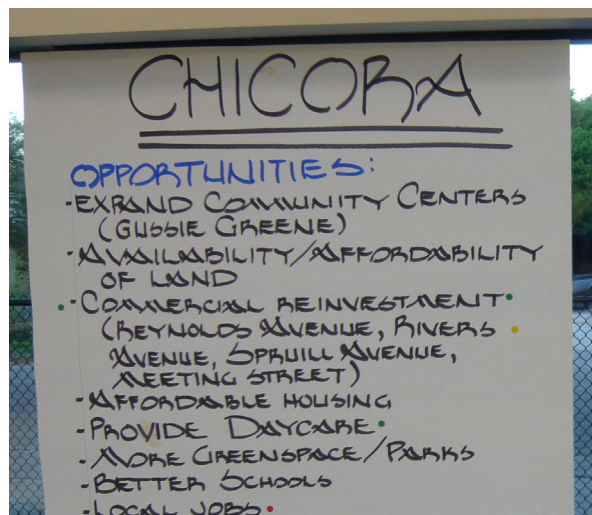 CHICORA
OPPORTUNITIES:
-EXPAND COMMUNITY CENTERS
(GUSSIE GREENE)
-AVAILABILITY/AFFORDABILITY
OF LAND
-COMMERCIAL REINVESTMENT
(REYNOLDS AVENUE, RIVERS
AVENUE, SPRUILL AVENUE,
MEETING STREET)
-AFFORDABLE HOUSING
-PROVIDE DAYCARE
-MORE GREENSPACE/PARKS
-BETTER SCHOOLS
-LOCAL JOBS